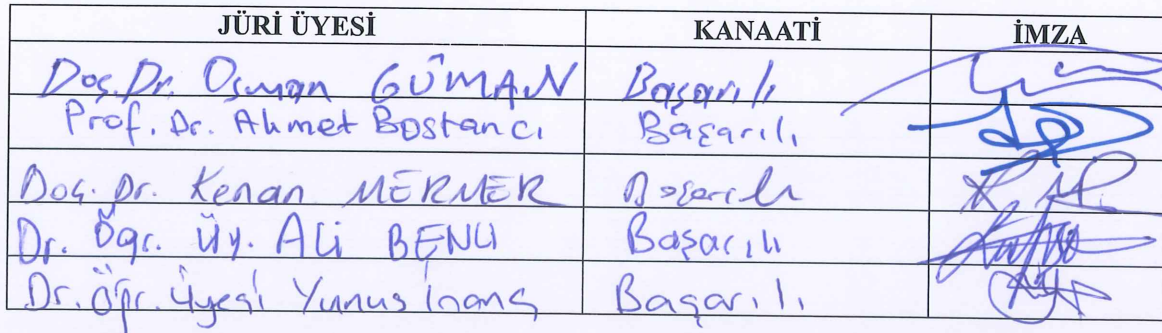 JÜRİ ÜYESİ KANAATİ İMZA
Doç. Dr. Osman GÜMAN Başarılı
Prof. Dr. Ahmet Bostancı Başarılı
Doç. Dr. Kenan MERMER Başarılı
Dr. Öğr. Üy. Ali BENLİ Başarılı
Dr. Öğr. Üyesi Yunus İnanç Başarılı